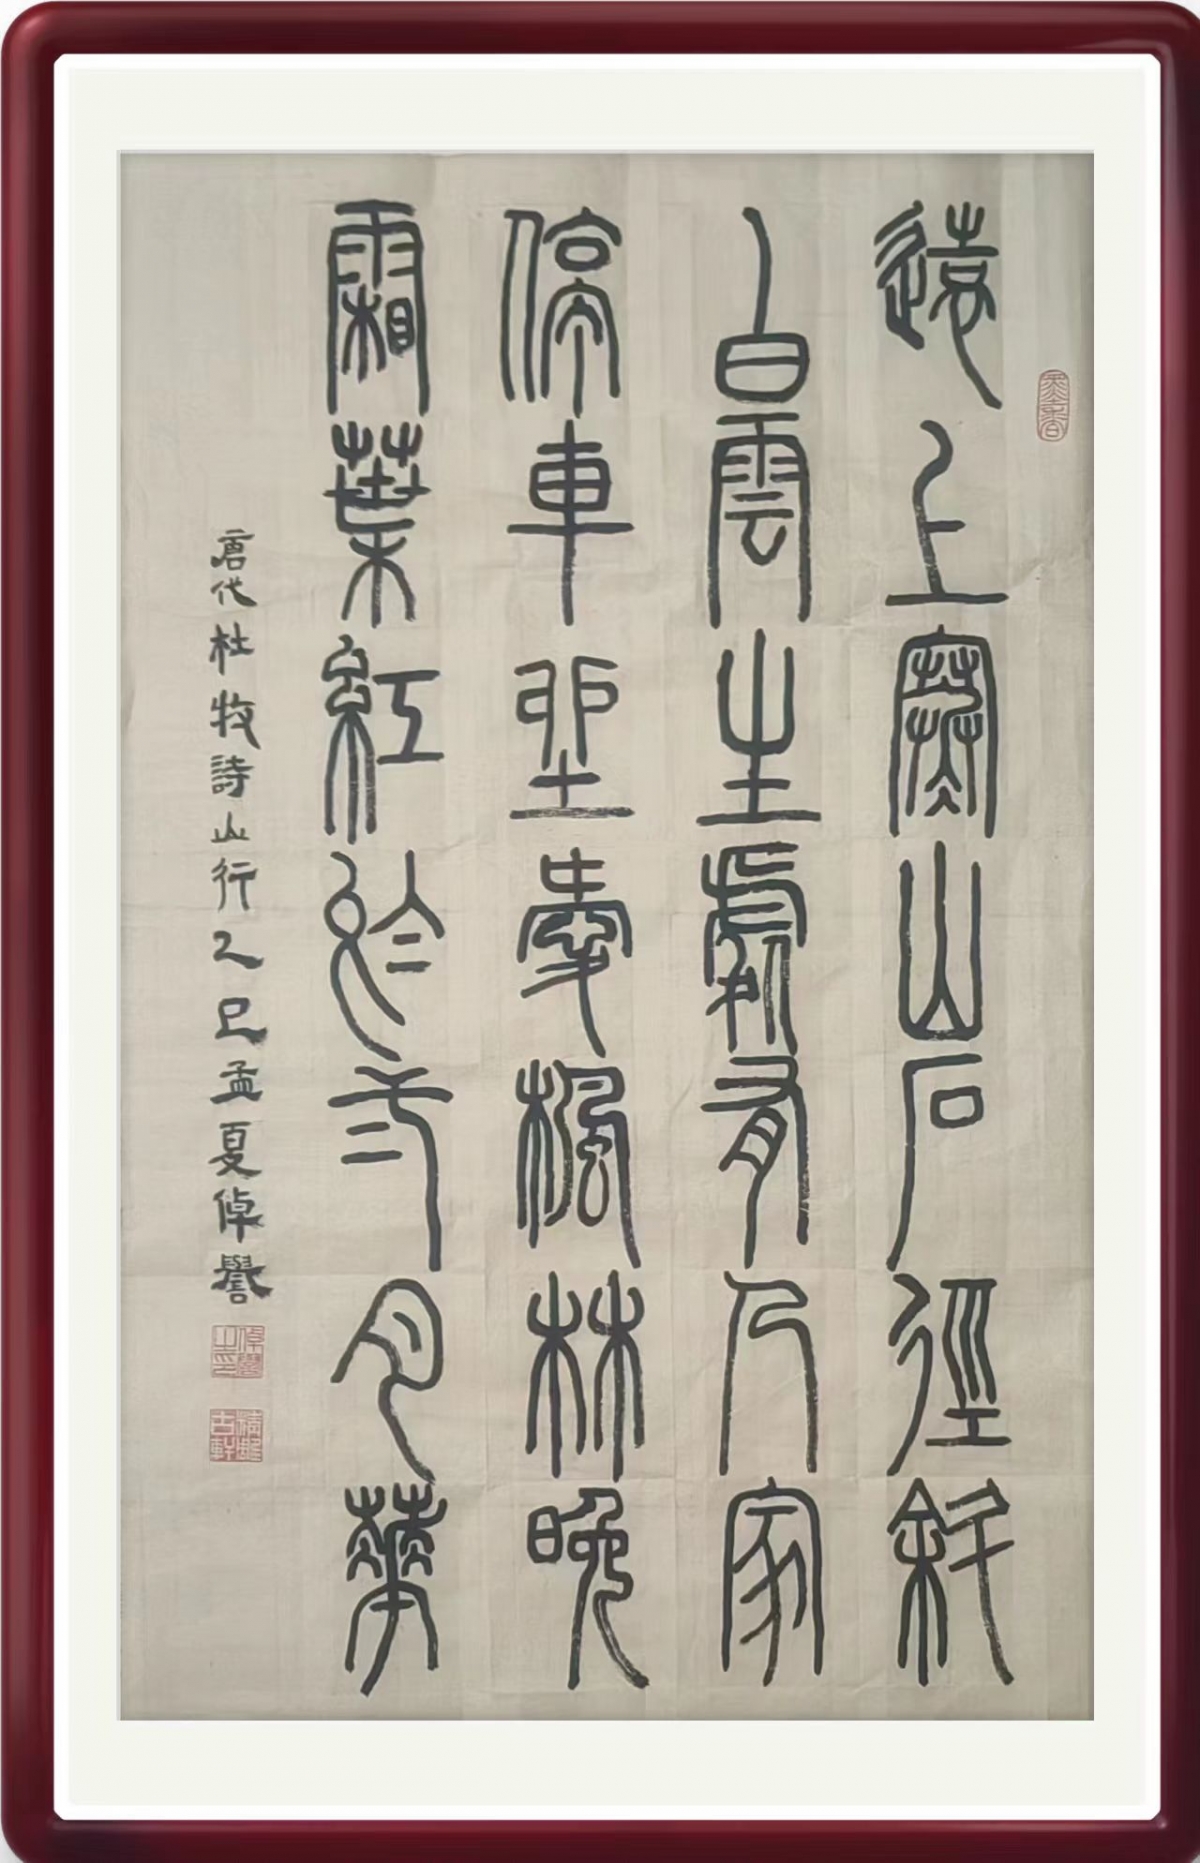 墨香
遠上寒山石徑斜
白雲生處有人家
停車坐愛楓林晚
霜葉紅於弍月華
唐代杜牧詩山行乙巳孟夏倬譽
倬譽之印